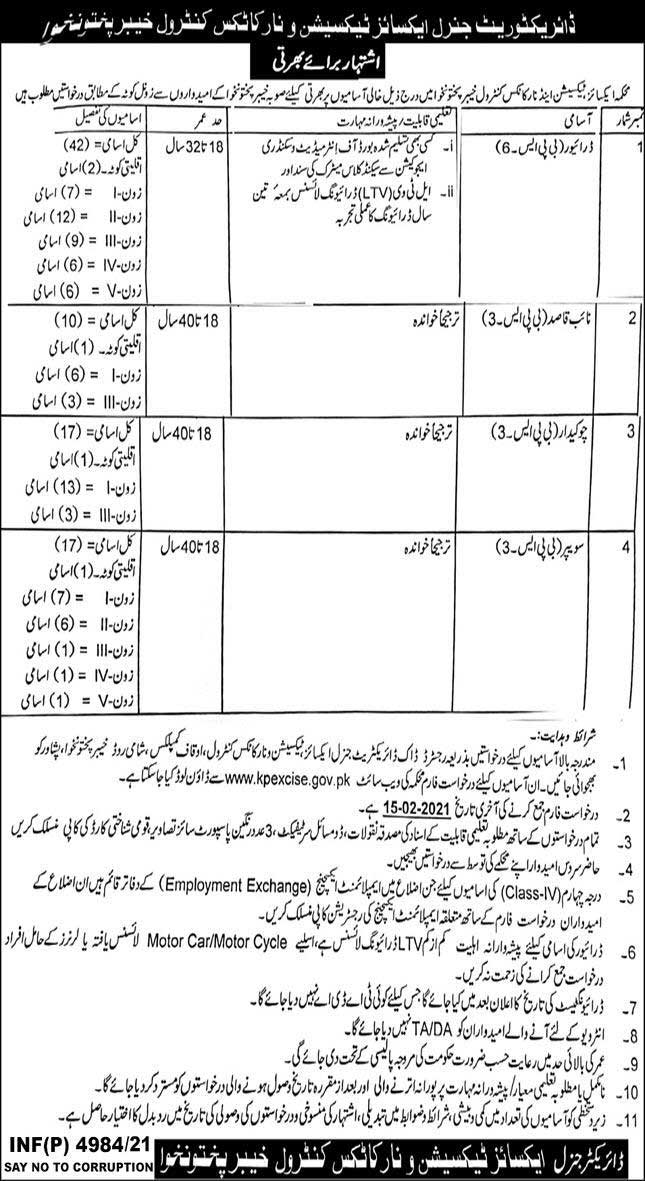 ڈائریکٹوریٹ جنرل ایکسائز ٹیکسیشن و نارکاٹکس کنٹرول خیبر پختونخوا
اشتہار برائے بھرتی
محکمہ ایکسائز، ٹیکسیشن اینڈ نارکاٹکس کنٹرول خیبر پختونخوا میں درج ذیل خالی آسامیوں پر بھرتی کیلئے صوبہ خیبر پختونخوا کے امیدواروں سے زونل کوٹہ کے مطابق درخواستیں مطلوب ہیں
نمبر شمار آسامی تعلیمی قابلیت/پیشہ ورانہ مہارت حد عمر اسامیوں کی تفصیل
1 ڈرائیور (بی پی ایس۔6)
i- کسی بھی تسلیم شدہ بورڈ آف انٹرمیڈیٹ و سکنڈری
ایجوکیشن سے سیکنڈ کلاس میٹرک کی سند اور
ii- ایل ٹی وی (LTV) ڈرائیونگ لائسنس بمعہ تین
سال ڈرائیونگ کا عملی تجربہ
18 تا 32 سال
کل اسامی = (42)
اقلیتی کوٹہ۔ (2) اسامی
زون-I = (7) اسامی
زون-II = (12) اسامی
زون-III = (9) اسامی
زون-IV = (6) اسامی
زون-V = (6) اسامی
2 نائب قاصد (بی پی ایس۔3) ترجیحاً خواندہ 18 تا 40 سال
کل اسامی = (10)
اقلیتی کوٹہ۔ (1) اسامی
زون-I = (6) اسامی
زون-III = (3) اسامی
3 چوکیدار (بی پی ایس۔3) ترجیحاً خواندہ 18 تا 40 سال
کل اسامی = (17)
اقلیتی کوٹہ۔ (1) اسامی
زون-I = (13) اسامی
زون-III = (3) اسامی
4 سویپر (بی پی ایس۔3) ترجیحاً خواندہ 18 تا 40 سال
کل اسامی = (17)
اقلیتی کوٹہ۔ (1) اسامی
زون-I = (7) اسامی
زون-II = (6) اسامی
زون-III = (1) اسامی
زون-IV = (1) اسامی
زون-V = (1) اسامی
شرائط و ہدایت:۔
1۔ مندرجہ بالا آسامیوں کیلئے درخواستیں بذریعہ رجسٹرڈ ڈاک ڈائریکٹریٹ جنرل ایکسائز، ٹیکسیشن و نارکاٹکس کنٹرول، اوقاف کمپلکس، شامی روڈ خیبر پختونخوا، پشاور کو
بھجوائی جائیں۔ ان آسامیوں کیلئے درخواست فارم محکمہ کی ویب سائٹ www.kpexcise.gov.pk سے ڈاؤن لوڈ کیا جاسکتا ہے۔
2۔ درخواست فارم جمع کرنے کی آخری تاریخ 15-02-2021 ہے۔
3۔ تمام درخواستوں کے ساتھ مطلوبہ تعلیمی قابلیت کے اسناد کی مصدقہ نقولات، ڈومسائل سرٹیفکیٹ، 3 عدد رنگین پاسپورٹ سائز تصاویر، قومی شناختی کارڈ کی کاپی منسلک کریں
4۔ حاضر سروس امیدوار اپنے محکمے کی توسط سے درخواستیں بھیجیں۔
5۔ درجہ چہارم (Class-IV) کی اسامیوں کیلئے جن اضلاع میں ایمپلائمنٹ ایکسچینج (Employment Exchange) کے دفاتر قائم ہیں ان اضلاع کے
امیدواران درخواست فارم کے ساتھ متعلقہ ایمپلائمنٹ ایکسچینج کی رجسٹریشن کاپی منسلک کریں۔
6۔ ڈرائیور کی اسامی کیلئے پیشہ ورانہ اہلیت کم از کم LTV ڈرائیونگ لائسنس ہے، اسلیے Motor Car/Motor Cycle لائسنس یافتہ یا لرنرز کے حامل افراد
درخواست جمع کرانے کی زحمت نہ کریں۔
7۔ ڈرائیونگ ٹیسٹ کی تاریخ کا اعلان بعد میں کیا جائے گا جس کیلئے کوئی ٹی اے ڈی اے نہیں دیا جائے گا۔
8۔ انٹرویو کے لئے آنے والے امیدواران کو TA/DA نہیں دیا جائے گا۔
9۔ عمر کی بالائی حد میں رعایت حسب ضرورت حکومت کی مروجہ پالیسی کے تحت دی جائے گی۔
10۔ نامکمل یا مطلوبہ تعلیمی معیار/پیشہ ورانہ مہارت پر پورا نہ اترنے والی اور بعد از مقررہ تاریخ وصول ہونے والی درخواستوں کو مسترد کر دیا جائے گا۔
11۔ زیر دستخطی کو آسامیوں کی تعداد میں کمی و بیشی، شرائط و ضوابط میں تبدیلی، اشتہار کی منسوخی و درخواستوں کی وصولی کی تاریخ میں رد بدل کا اختیار حاصل ہے۔
ڈائریکٹر جنرل ایکسائز ٹیکسیشن و نارکاٹکس کنٹرول خیبر پختونخوا
INF(P) 4984/21
SAY NO TO CORRUPTION